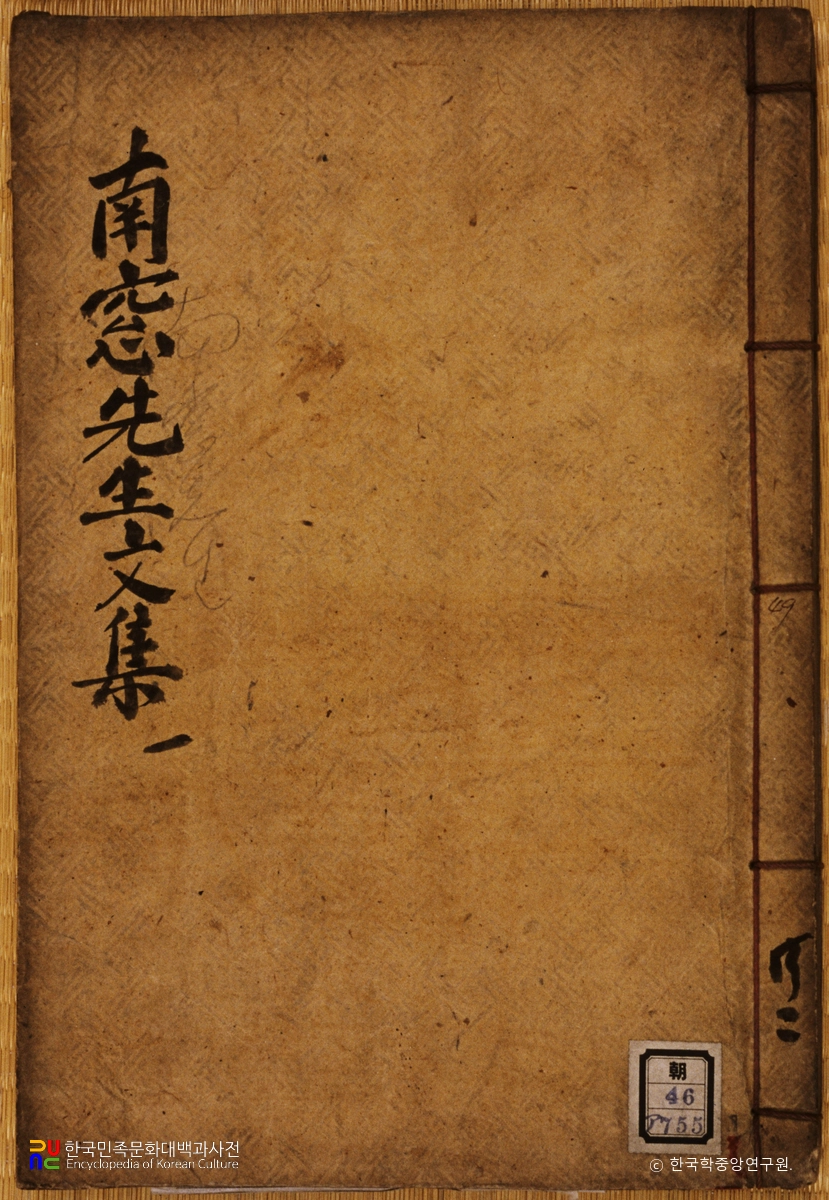 南窓先生文集 一
共二
49
朝
46
755
한국민족문화대백과사전
Encyclopedia of Korean Culture
© 한국학중앙연구원.